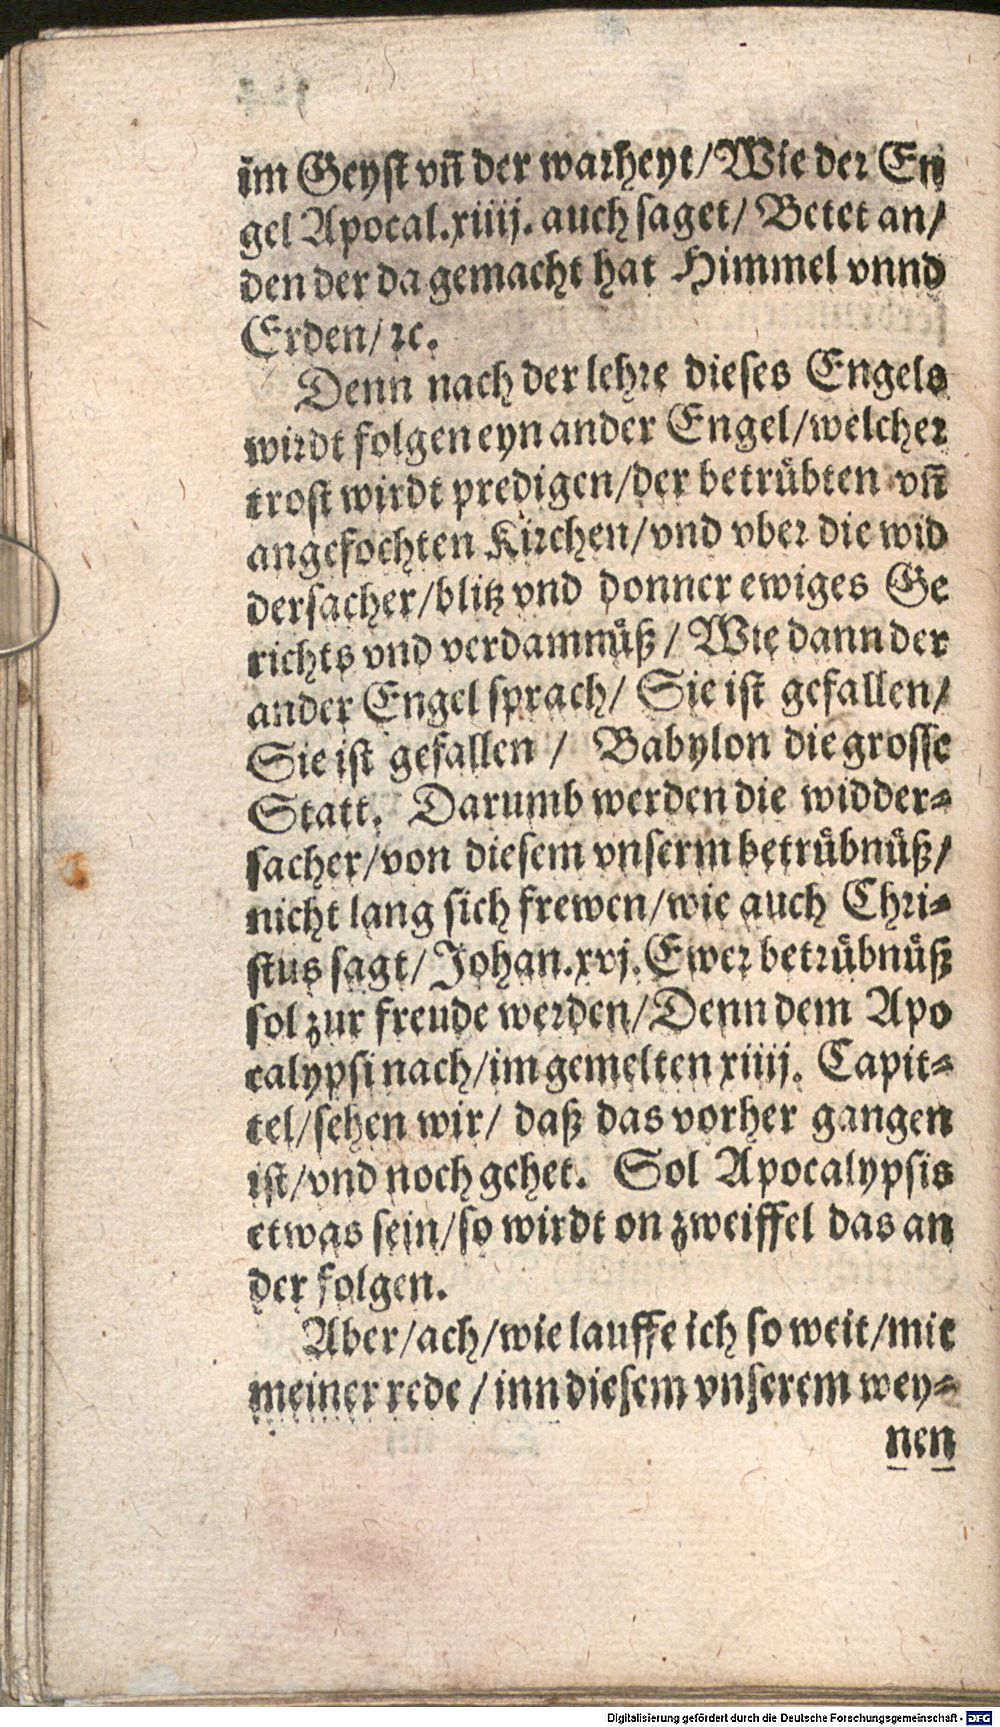 im Geyst vñ der warheyt/Wie der En
gel Apocal.xiiij. auch saget/ Betet an/
den der da gemacht hat Himmel vnnd
Erden/ ꝛc.
Denn nach der lehre dieses Engels
wirdt folgen eyn ander Engel/welcher
trost wirdt predigen/der betrübten vñ
angefochten Kirchen/vnd vber die wid
dersacher/blitz vnd donner ewiges Ge
richts vnd verdamnüß/ Wie dann der
ander Engel sprach/ Sie ist gefallen/
Sie ist gefallen / Babylon die grosse
Statt. Darumb werden die widder-
sacher/von diesem vnserm betrübnüß/
nicht lang sich frewen/wie auch Chri-
stus sagt/ Johan.xvj. Ewer betrübnüß
sol zur freude werden/Denn dem Apo
calypsi nach/im gemelten xiiij. Capit-
tel/sehen wir/ daß das vorher gangen
ist/vnd noch gehet. Sol Apocalypsis
etwas sein/so wirdt on zweiffel das an
der folgen.
Aber/ach/wie lauffe ich so weit/mit
meiner rede / inn diesem vnserem wey-
nen
Digitalisierung gefördert durch die Deutsche Forschungsgemeinschaft - DFG